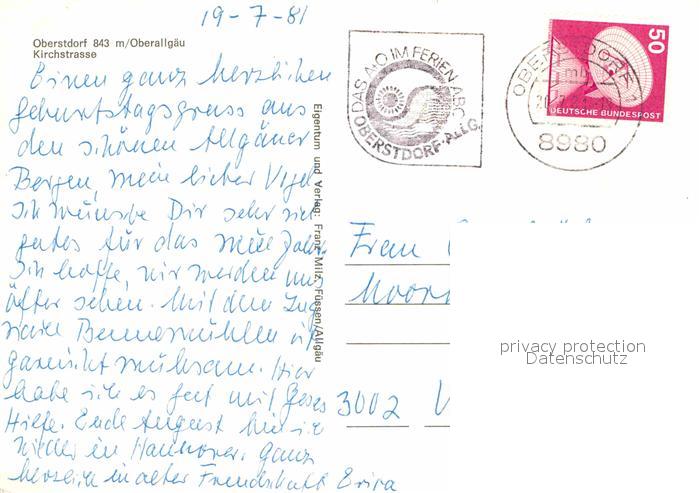 19-7-81
Oberstdorf 843 m/Oberallgäu
Kirchstrasse
Einen ganz herzlichen
Geburtstagsgruss aus
den schönen Allgäuer
Bergen, mein lieber
Ich wünsche Dir sehr viel
gutes für das neue Jahr.
Ich hoffe, wir werden uns
öfter sehen. Mit dem Zug
nach Bennemühlen ist
garnicht mühsam. Hier
habe ich es gut mit
Hilfe. Ende August bin ich
wieder in Hannover. Ganz
herzlich in alter Freundschaft Erica
Eigentum und Verlag: Franz Milz, Füssen/Allgäu
DAS A-O IM FERIEN-ABC
OBERSTDORF-ALLG.
OBERSTDORF 1
mb
8980
50
DEUTSCHE BUNDESPOST
Frau
3002
privacy protection
Datenschutz